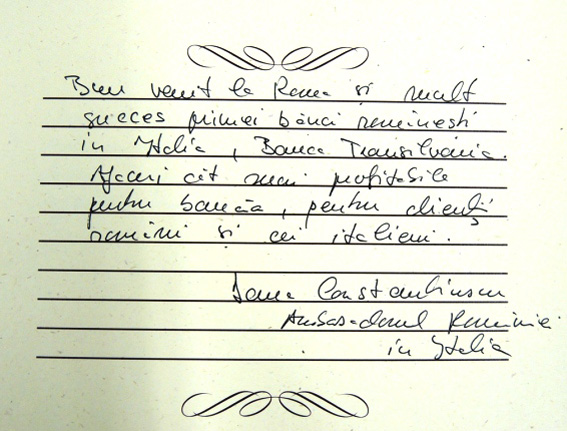 Bun venit la Roma și mult
succes primei bănci românești
în Italia, Banca Transilvania.
Afaceri cît mai profitabile
pentru bancă, pentru clienții
români și cei italieni.
Dana Constantinescu
Ambasadorul României
în Italia